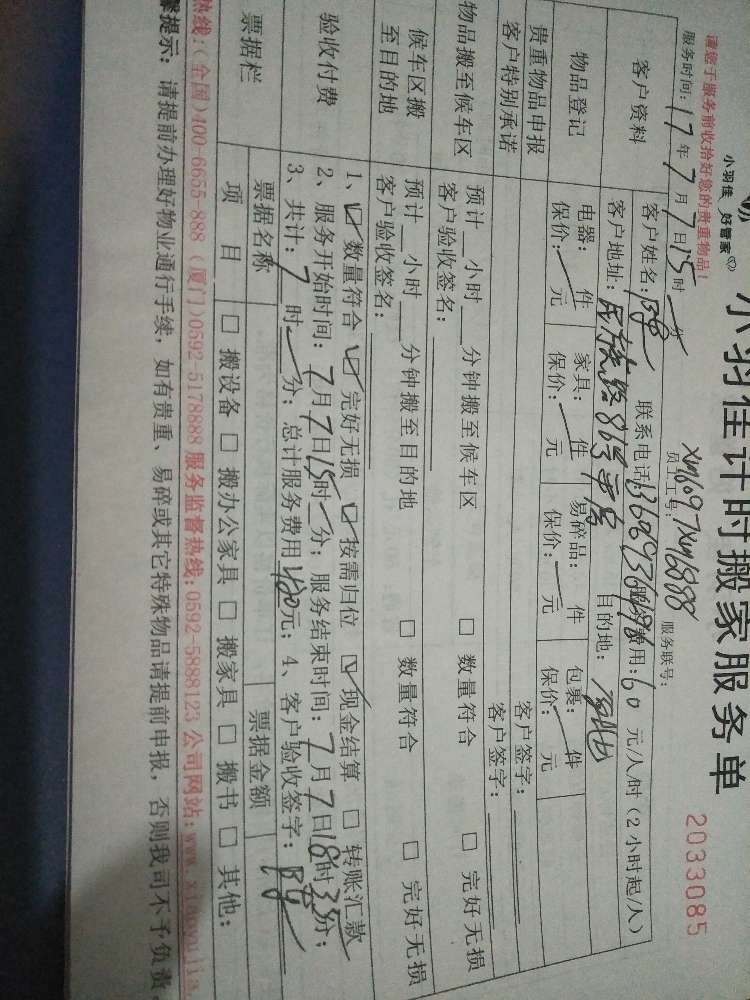 小羽佳 好管家
小羽佳计时搬家服务单
2033085
请您于服务前收拾好您的贵重物品！
员工工号：xm6097xm6888 服务联号：
服务时间：17年7月7日15时
客户资料 客户姓名： 联系电话：13606936496 服务费用：60元/人/时（2小时起/人）
客户地址： 865号 目的地：
物品登记 电器： 件 家具： 件 易碎品： 件 包裹： 件
保价： 元 保价： 元 保价： 元 保价： 元
贵重物品申报 客户签字：
客户特别承诺 客户签字：
物品搬至候车区 预计__小时__分钟搬至候车区 □ 数量符合 □ 完好无损
客户验收签名：
候车区搬至目的地 预计__小时__分钟搬至目的地 □ 数量符合 □ 完好无损
客户验收签名：
验收付费 1、☑ 数量符合 ☑ 完好无损 ☑ 按需归位 ☑ 现金结算 □ 转账汇款
2、服务开始时间：7月7日15时 分；服务结束时间：7月7日18时35分；
3、共计：7时 分；总计服务费用420元；4、客户验收签字：
票据栏 票据名称 票据金额
项目 □ 搬设备 □ 搬办公家具 □ 搬家具 □ 搬书 □ 其他：
热线：（全国）400-6655-888（厦门）0592-5178888 服务监督热线：0592-5888123 公司网站：www.xiaoyujia.
提示：请提前办理好物业通行手续，如有贵重、易碎或其它特殊物品请提前申报，否则我司不予负责。